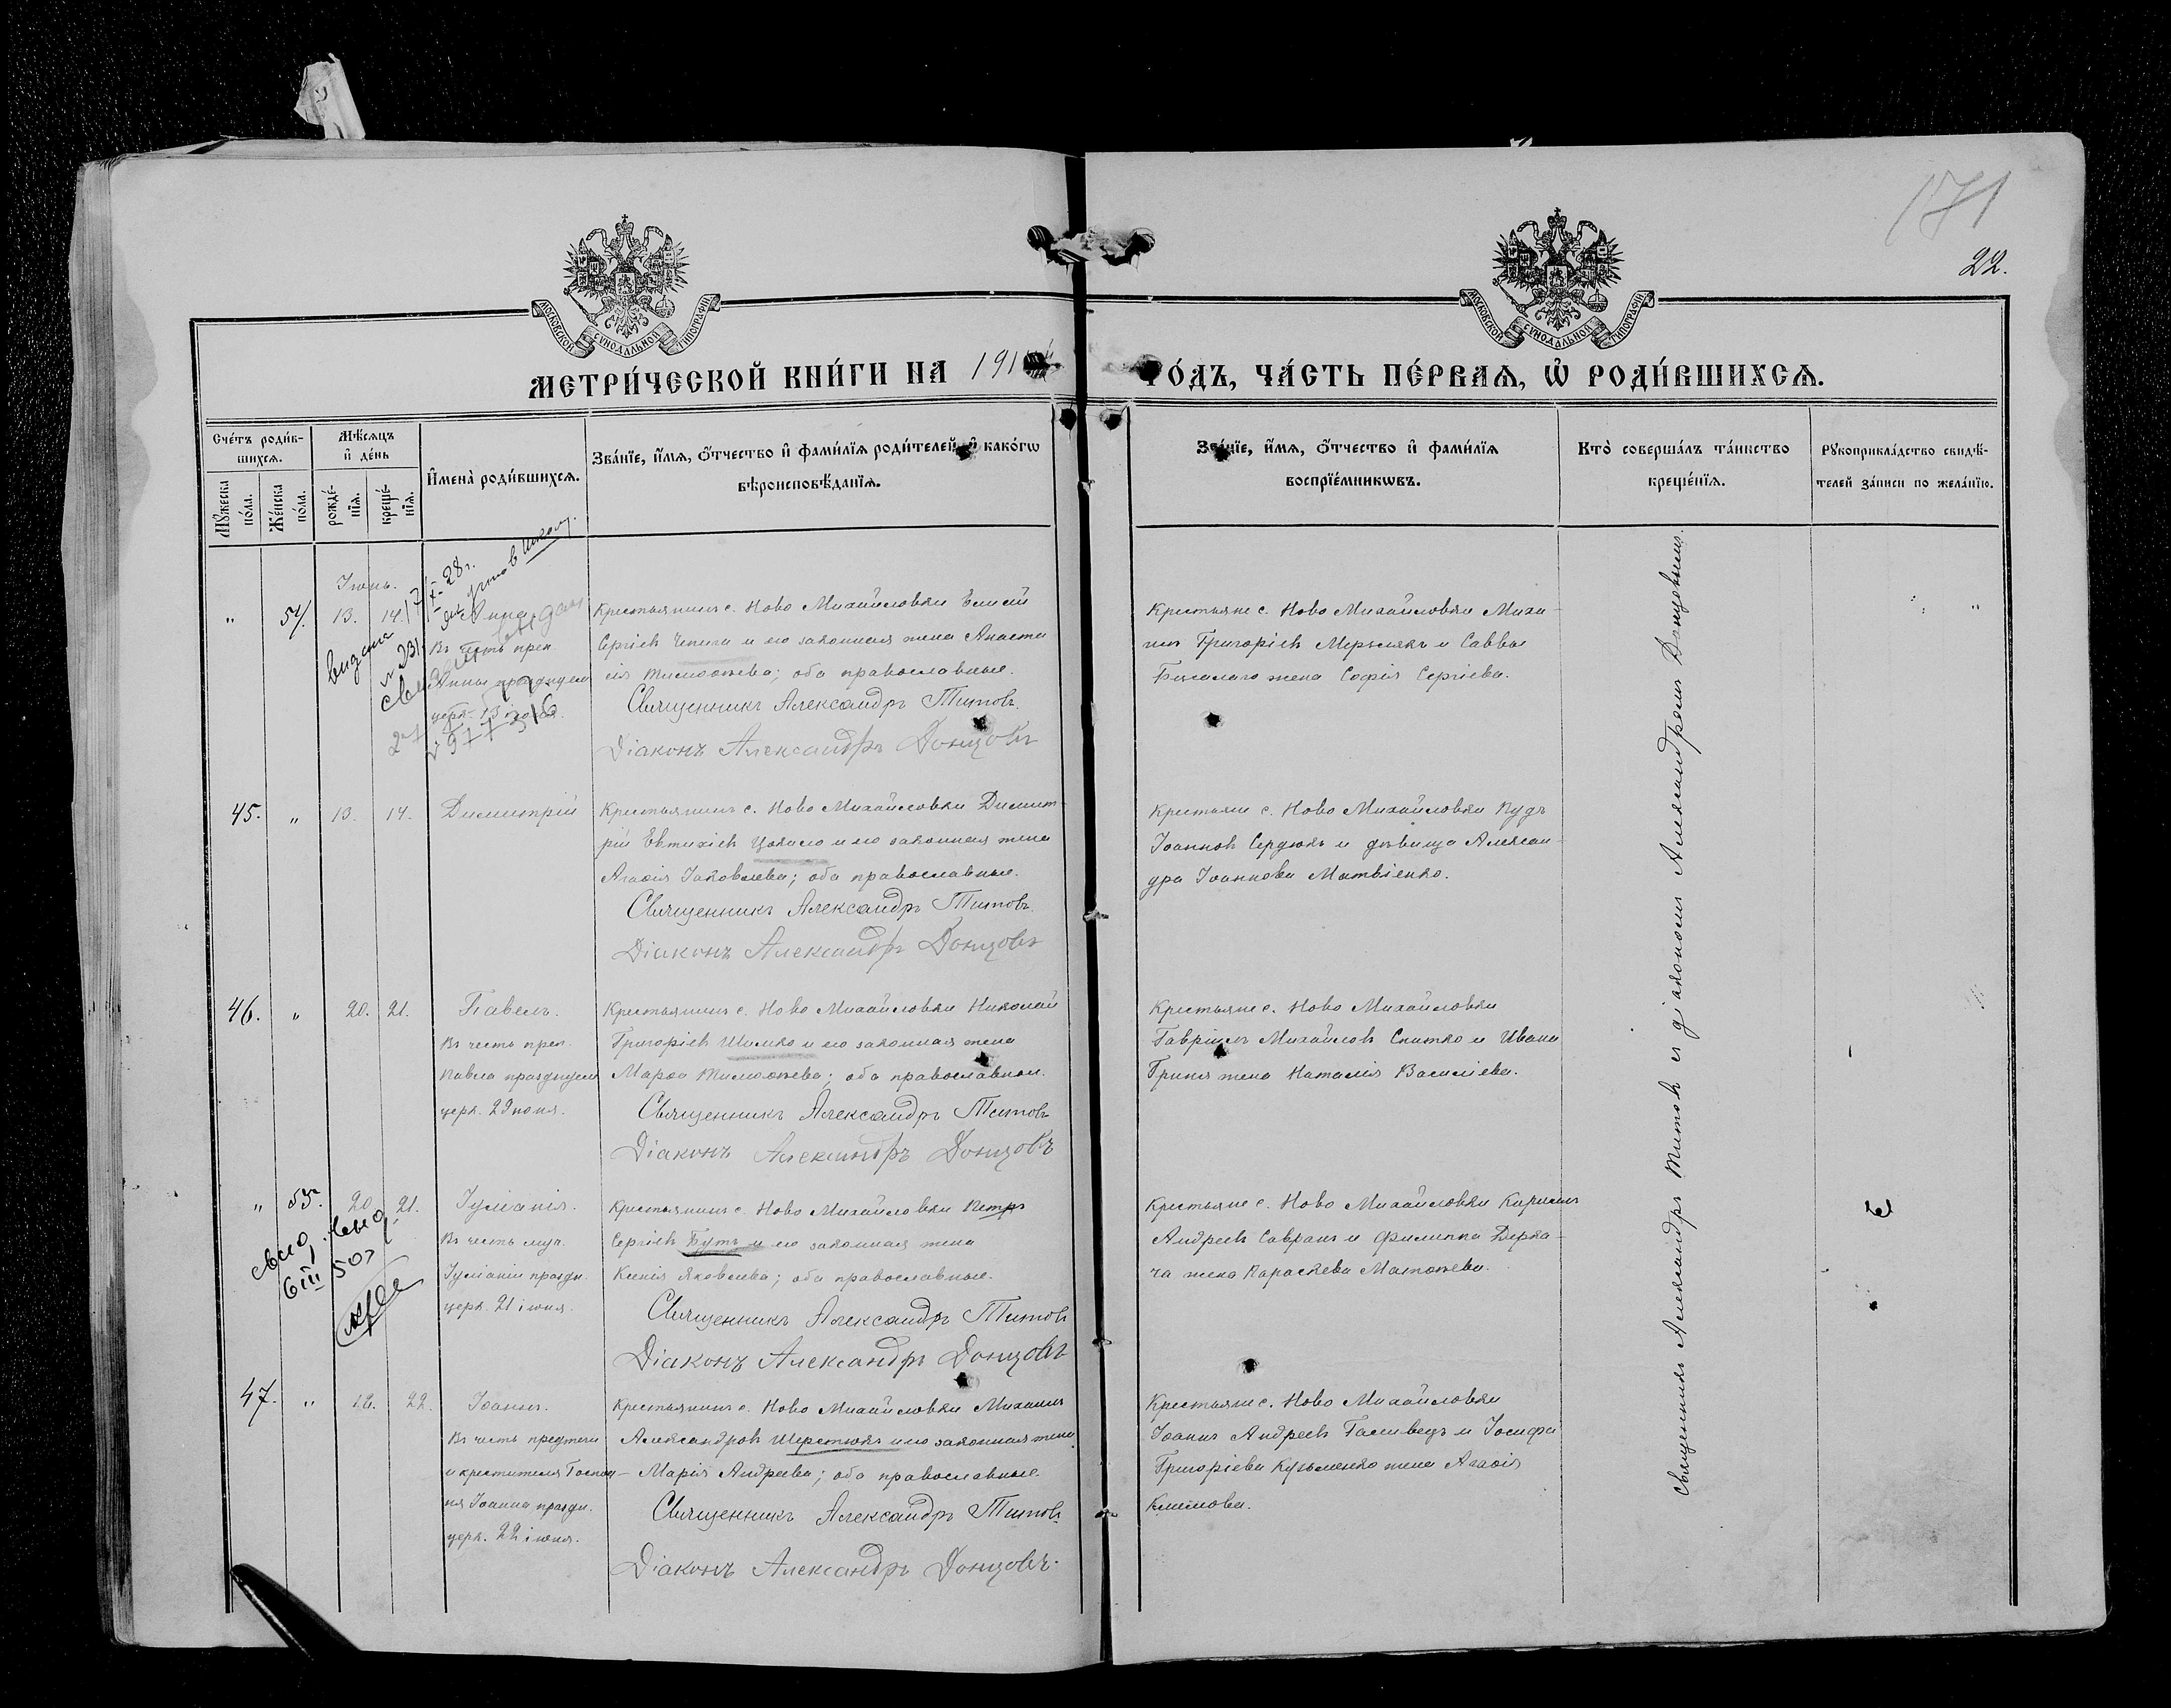 171
22.
МОСКОВСКОЙ СУНОДАЛЬНОЙ ТИПОГРАФІИ
МОСКОВСКОЙ СУНОДАЛЬНОЙ ТИПОГРАФІИ
МЕТРИ́ЧЕСКОЙ КНИ́ГИ НА 191
ГО́ДЪ, ЧА́СТЬ ПЕ́РВАѦ, Ѡ҆ РОДИ́ВШИХСѦ.
Сче́тъ роди́в-
шихсѧ.
Мѣ́сѧцъ
и҆ де́нь
Мꙋ́жеска
по́ла.
Же́нска
по́ла.
рожде́-
нїѧ.
креще́-
нїѧ.
И҆мена̀ роди́вшихсѧ.
Зва́нїе, и҆́мѧ, ѻ҆́тчество и҆ фами́лїѧ роди́телей, и҆ како́гѡ
вѣроисповѣ́данїѧ.
Зва́нїе, и҆́мѧ, ѻ҆́тчество и҆ фами́лїѧ
воспрїе́мникѡвъ.
Кто̀ соверша́лъ та́инство
креще́нїѧ.
Рꙋкоприкла́дство свидѣ́-
телей за́писи по жела́нїю.
Іюнь.
" 54. 13. 14. Анна
Въ честь преп.
Анны празднуем.
церк. 13 іюня.
28 г.
школу.
видана
Крестьянинъ с. Ново Михайловки Елисей
Сергіевъ Чепига и его законная жена Анаста
сія Тимоѳѣева; оба православные.
Священникъ Александръ Титовъ.
Діаконъ Александръ Донцовъ
Крестьяне с. Ново Михайловки Миха-
илъ Григоріевъ Мерзлякъ и Саввы
жена Софія Сергіева.
45. " 13. 14. Димитрій
Крестьянинъ с. Ново Михайловки Димит-
рій Евтихіевъ Цокало и его законная жена
Агаѳія Іаковлева; оба православные.
Священникъ Александръ Титовъ.
Діаконъ Александръ Донцовъ
Крестьяне с. Ново Михайловки Пудъ
Іоанновъ Сердюкъ и дѣвица Алексан-
дра Іоаннова Матвіенко.
46. " 20. 21. Павелъ.
Въ честь преп.
Павла празднуем
церк. 29 іюня.
Крестьянинъ с. Ново Михайловки Николай
Григоріевъ Шимко и его законная жена
Марѳа Тимоѳѣева; оба православные.
Священникъ Александръ Титовъ
Діаконъ Александръ Донцовъ
Крестьяне с. Ново Михайловки
Гавріилъ Михайловъ Снитко и Ивана
Гриня жена Наталія Василіева.
" 55. 20. 21. Іуліанія.
Въ честь муч.
Іуліаніи праздн.
церк. 21 іюня.
6 III 50
Крестьянинъ с. Ново Михайловки Петръ
Сергіевъ Бутъ и его законная жена
Ксенія Яковлева; оба православные.
Священникъ Александръ Титовъ
Діаконъ Александръ Донцовъ
Крестьяне с. Ново Михайловки Кириллъ
Андреевъ Савранъ и Филиппа Дерка-
ча жена Параскева Матѳѣева.
47. " 22. Іоаннъ.
Въ честь предтечи
и крестителя Господ-
ня Іоанна праздн.
церк. 22 іюня.
Крестьянинъ с. Ново Михайловки Михаилъ
Александровъ Шерстюкъ и его законная жена
Марія Андреева; оба православные.
Священникъ Александръ Титовъ.
Діаконъ Александръ Донцовъ.
Крестьяне с. Ново Михайловки
Іоаннъ Андреевъ и Іосифа
Григоріева Кузьменко жена Агаѳія
Климова.
Священникъ Александръ Титовъ съ діакономъ Александромъ Донцовымъ.